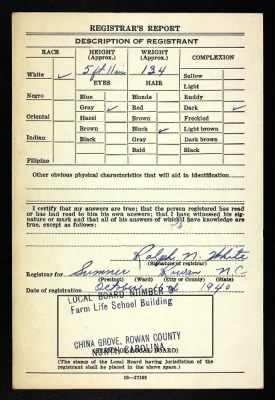 REGISTRAR'S REPORT
DESCRIPTION OF REGISTRANT
RACE HEIGHT (Approx.) WEIGHT (Approx.) COMPLEXION
White ✓ 5 ft 11 in 134 Sallow
EYES HAIR Light
Negro Blue Blonde Ruddy
Gray ✓ Red Dark ✓
Oriental Hazel Brown Freckled
Brown Black ✓ Light brown
Indian Black Gray Dark brown
Bald Black
Filipino
Other obvious physical characteristics that will aid in identification
I certify that my answers are true; that the person registered has read
or has had read to him his own answers; that I have witnessed his
signature or mark and that all of his answers of which I have knowledge are
true, except as follows:
Ralph N. White
(Signature of registrar)
Registrar for Sumner Rowan N.C.
(Precinct) (Ward) (City or County) (State)
Date of registration October 16th 1940
LOCAL BOARD NUMBER 3
Farm Life School Building
CHINA GROVE, ROWAN COUNTY
NORTH CAROLINA
(STAMP OF LOCAL BOARD)
(The stamp of the Local Board having jurisdiction of the
registrant shall be placed in the above space.)